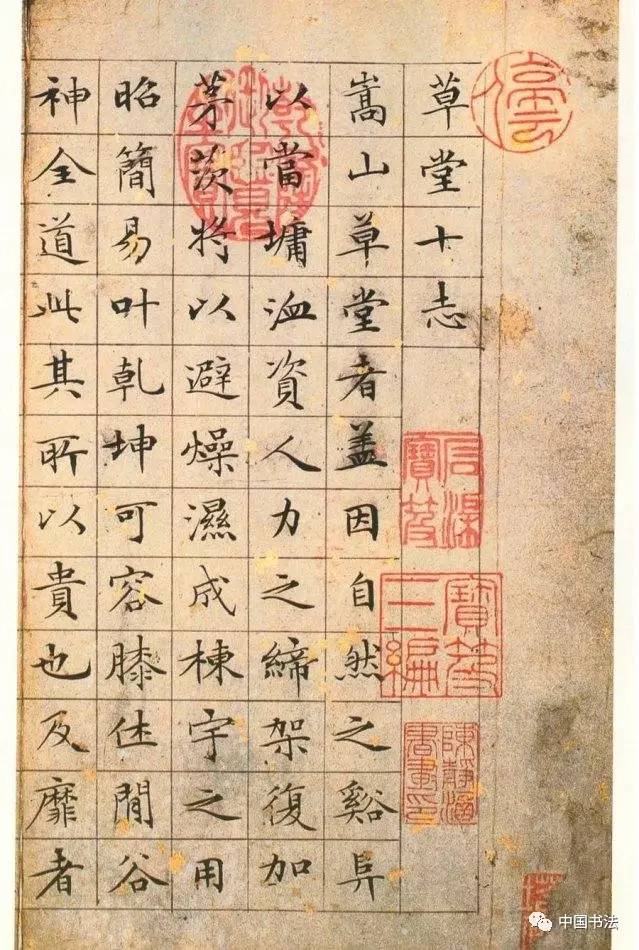 草堂十志
嵩山草堂者盖因自然之谿阜
以當墉洫資人力之締架復加
茅茨将以避燥濕成棟宇之用
昭簡易叶乾坤可容膝休閒谷
神全道此其所以貴也及靡者
石渠寶笈
寶笈三編
中国书法